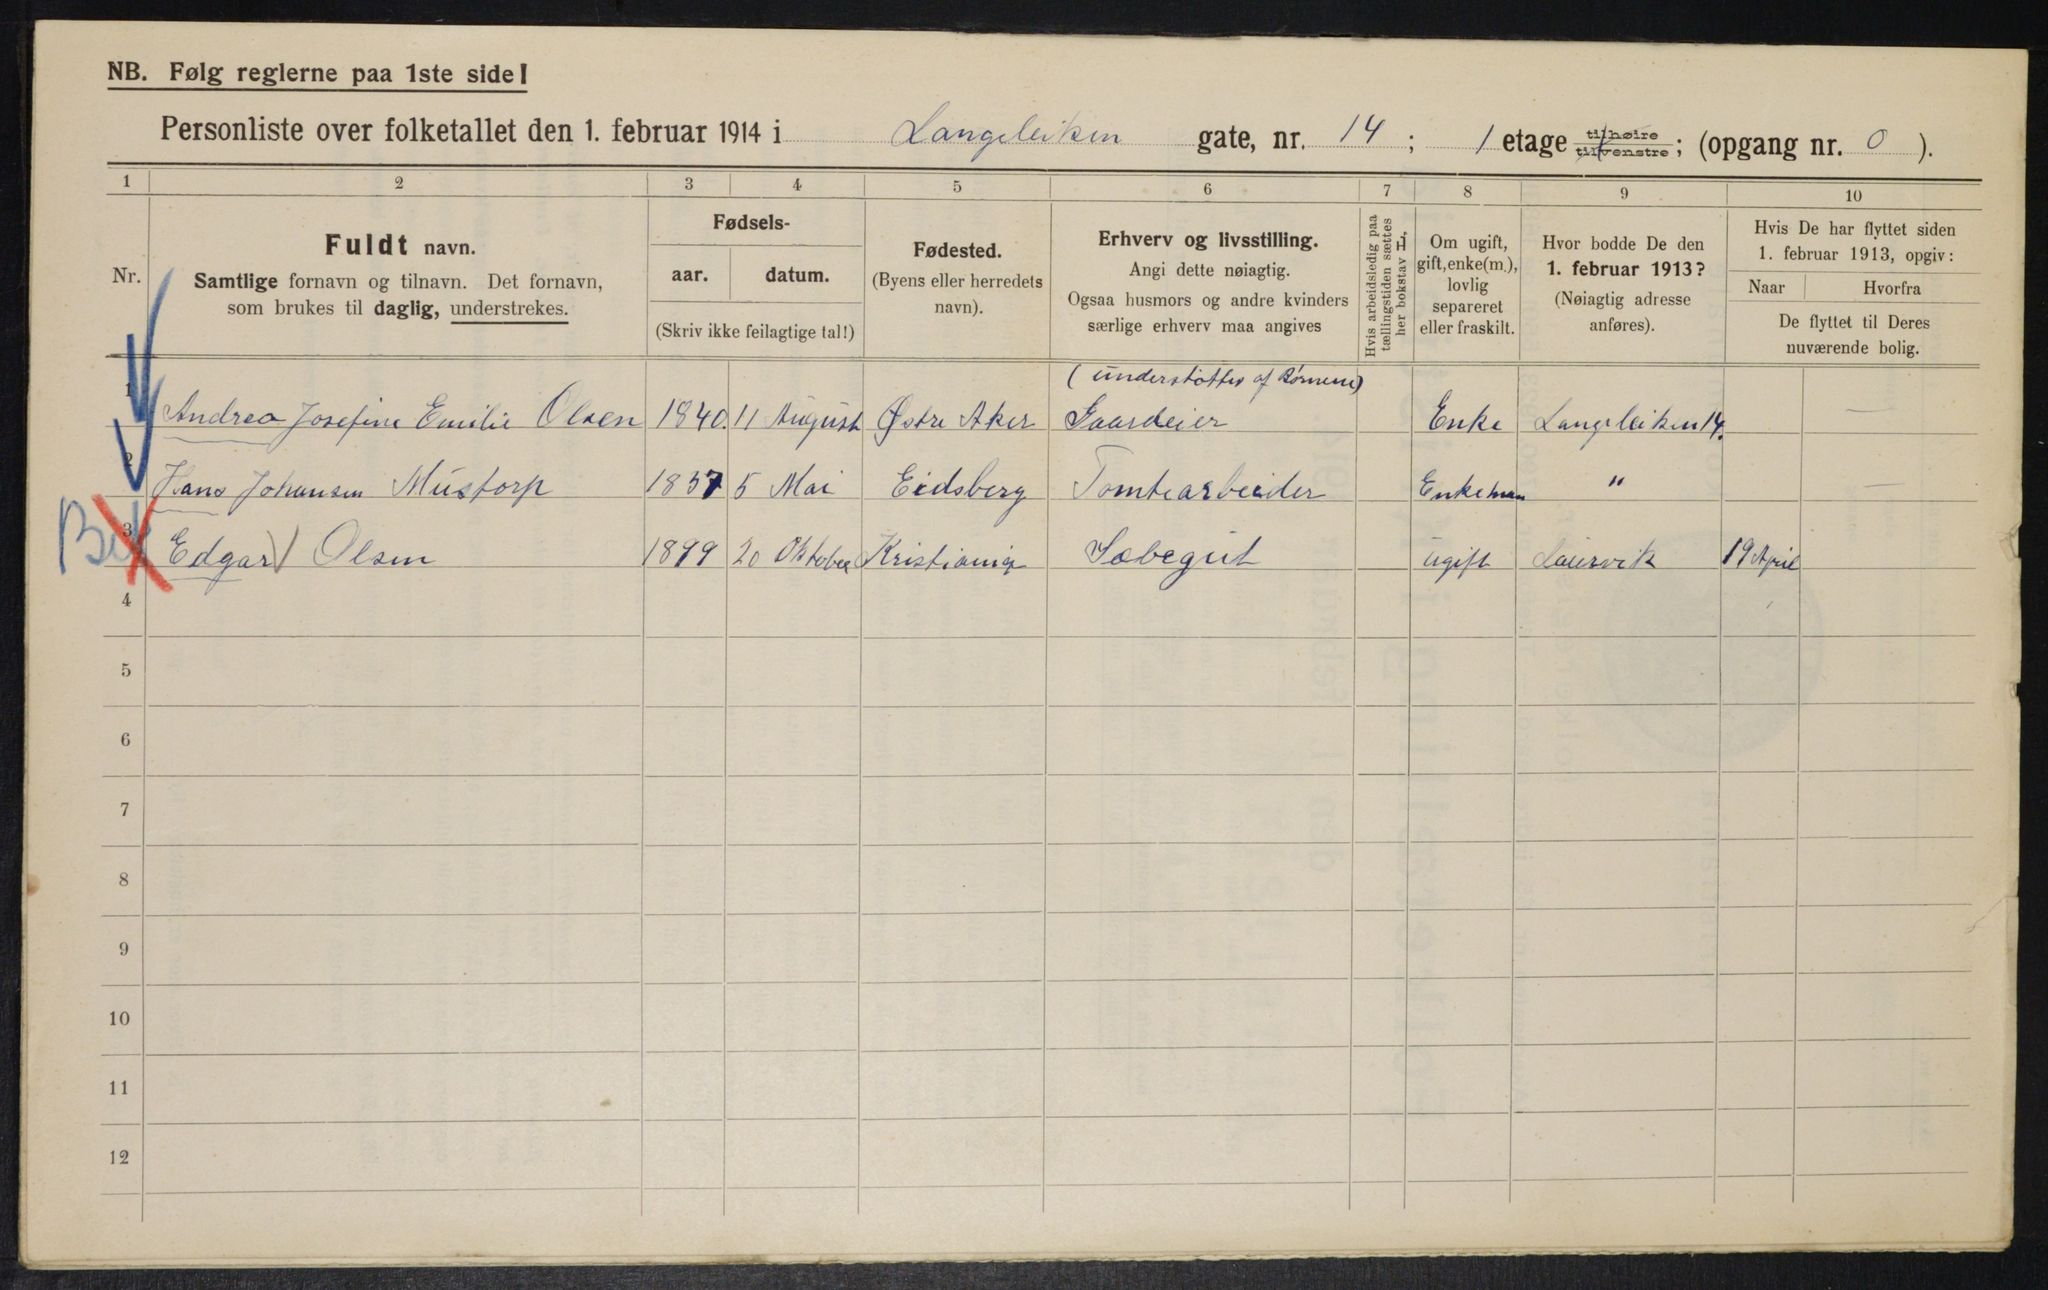 NB. Følg reglerne paa 1ste side!
Personliste over folketallet den 1. februar 1914 i Langeleiken gate, nr. 14 ; 1 etage til høire / til venstre ; (opgang nr. 0 ).
1 2 3 4 5 6 7 8 9 10
Nr.
Fuldt navn.
Samtlige fornavn og tilnavn. Det fornavn,
som brukes til daglig, understrekes.
Fødsels-
aar. datum.
(Skriv ikke feilagtige tal!)
Fødested.
(Byens eller herredets
navn).
Erhverv og livsstilling.
Angi dette nøiagtig.
Ogsaa husmors og andre kvinders
særlige erhverv maa angives
Hvis arbeidsledig paa
tællingstiden sættes
her bokstav L.
Om ugift,
gift, enke(m.),
lovlig
separeret
eller fraskilt.
Hvor bodde De den
1. februar 1913?
(Nøiagtig adresse
anføres).
Hvis De har flyttet siden
1. februar 1913, opgiv:
Naar Hvorfra
De flyttet til Deres
nuværende bolig.
(understøttes af Børnene)
1 Andrea Josefine Emilie Olsen 1840. 11 August Østre Aker Gaardeier Enke Langeleiken 14. —
2 Hans Johansen Mustorp 1837 5 Mai Eidsberg Tomtearbeider Enkeman " —
3 Edgar Olsen 1899 20 Oktober Kristiania Løbegut ugift Laurvik 19 April
4
5
6
7
8
9
10
11
12